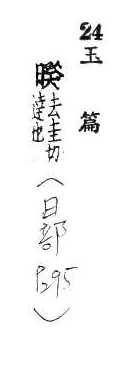 24 玉篇
暌 去圭切
違也
(日部 P.295)